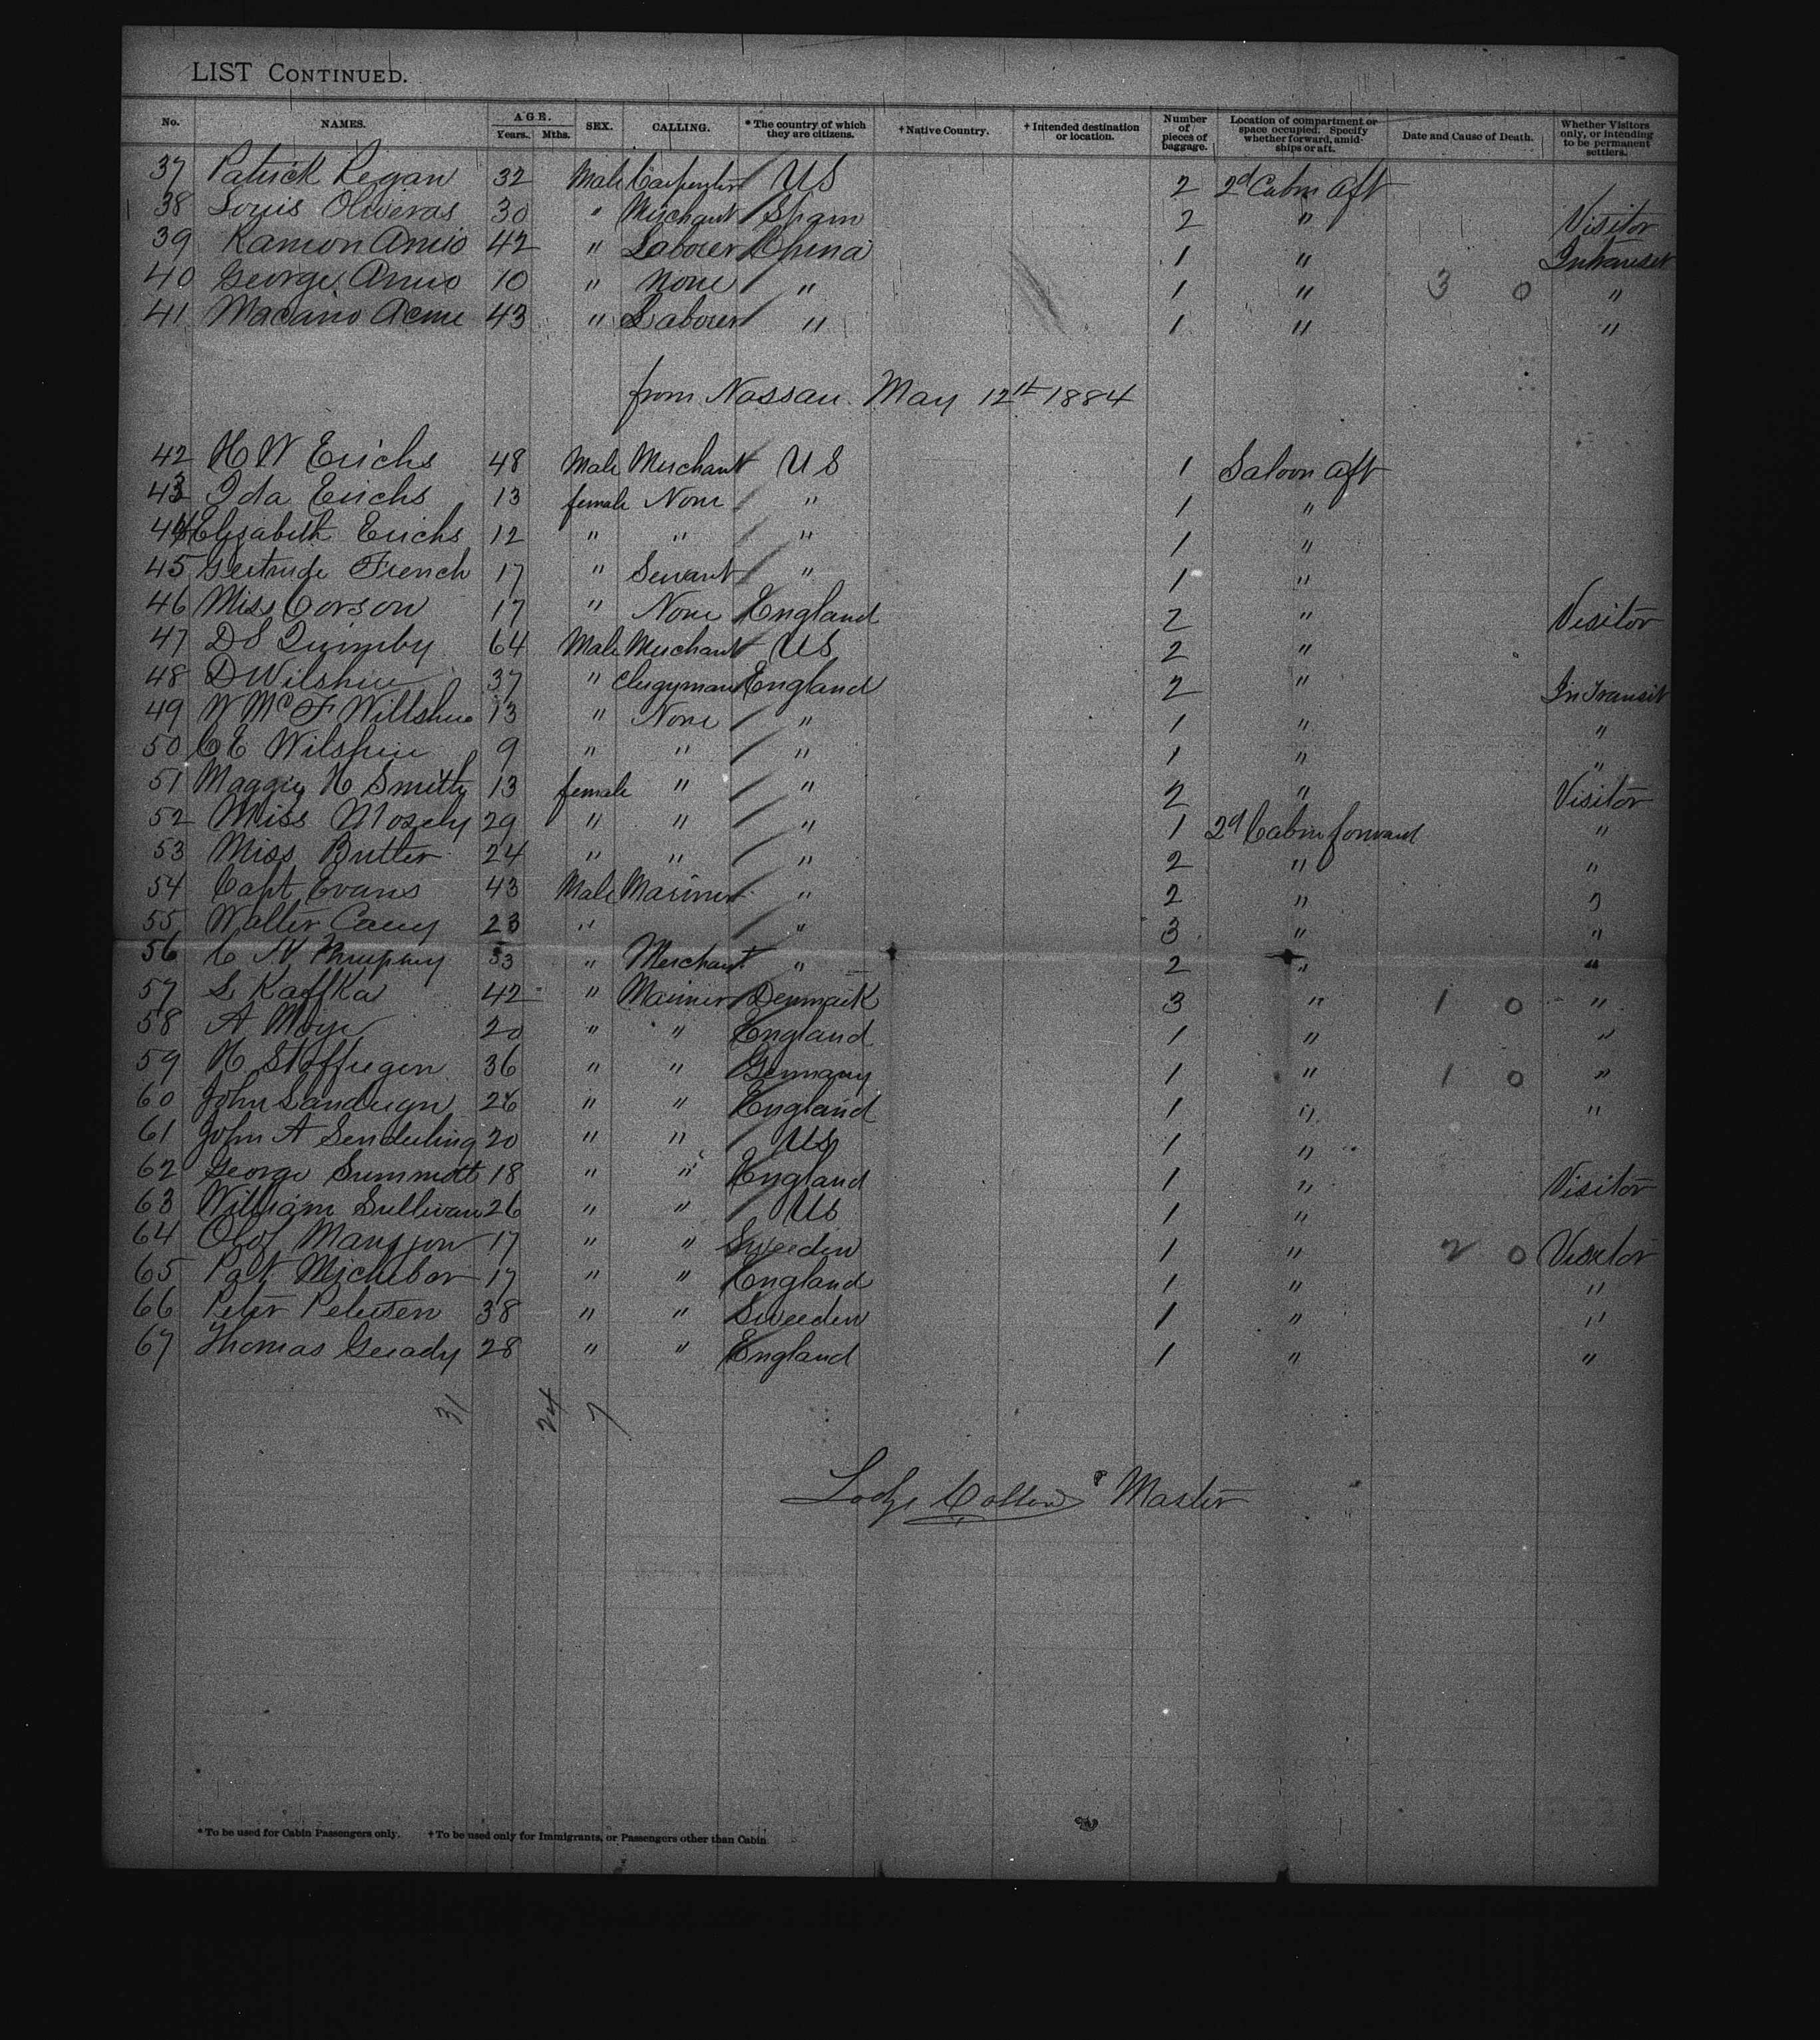 LIST CONTINUED.
No. NAMES. AGE. Years. Mths. SEX. CALLING. * The country of which they are citizens. † Native Country. † Intended destination or location. Number of pieces of baggage. Location of compartment or space occupied. Specify whether forward, amidships or aft. Date and Cause of Death. Whether Visitors only, or intending to be permanent settlers.
37 Patrick Regan 32 Male Carpenter US 2 2d Cabin Aft
38 Louis Oliveras 30 " Merchant Spain 2 " Visitor
39 Ramon Amio 42 " Laborer China 1 " Intransit
40 George Amio 10 " None " 1 " 3 0 "
41 Macario Acme 43 " Laborer " 1 " "
from Nassau May 12th 1884
42 H W Erichs 48 Male Merchant US 1 Saloon Aft
43 Ida Erichs 13 female None " 1 "
44 Elizabeth Erichs 12 " " " 1 "
45 Gertrude French 17 " Servant " 1 "
46 Miss Corson 17 " None England 2 " Visitor
47 D S Quimby 64 Male Merchant US 2 "
48 D Wilshire 37 " Clergyman England 2 " In Transit
49 W McF Willshire 13 " None " 1 " "
50 C E Wilshire 9 " " " 1 " "
51 Maggie H Smith 13 female " " 2 " Visitor
52 Miss Mosely 29 " " " 1 2d Cabin forward "
53 Miss Butler 24 " " " 2 " "
54 Capt Evans 43 Male Mariner " 2 " "
55 Walter 23 " " 3 " "
56 C 53 " Merchant " 2 " "
57 S Kaffka 42 " Mariner Denmark 3 " 1 0 "
58 A 20 " " England 1 " "
59 H Stoffregen 36 " " Germany 1 " 1 0 "
60 John 26 " " England 1 " "
61 John A Senderling 20 " " US 1 "
62 George Summott 18 " " England 1 " Visitor
63 William Sullivan 26 " " US 1 "
64 Olof Mansson 17 " " Sweeden 1 " 2 0 Visitor
65 Pat 17 " " England 1 " "
66 Peter Petersen 38 " " Sweeden 1 " "
67 Thomas Gerady 28 " " England 1 " "
31 24 7
Master
* To be used for Cabin Passengers only. † To be used only for Immigrants, or Passengers other than Cabin